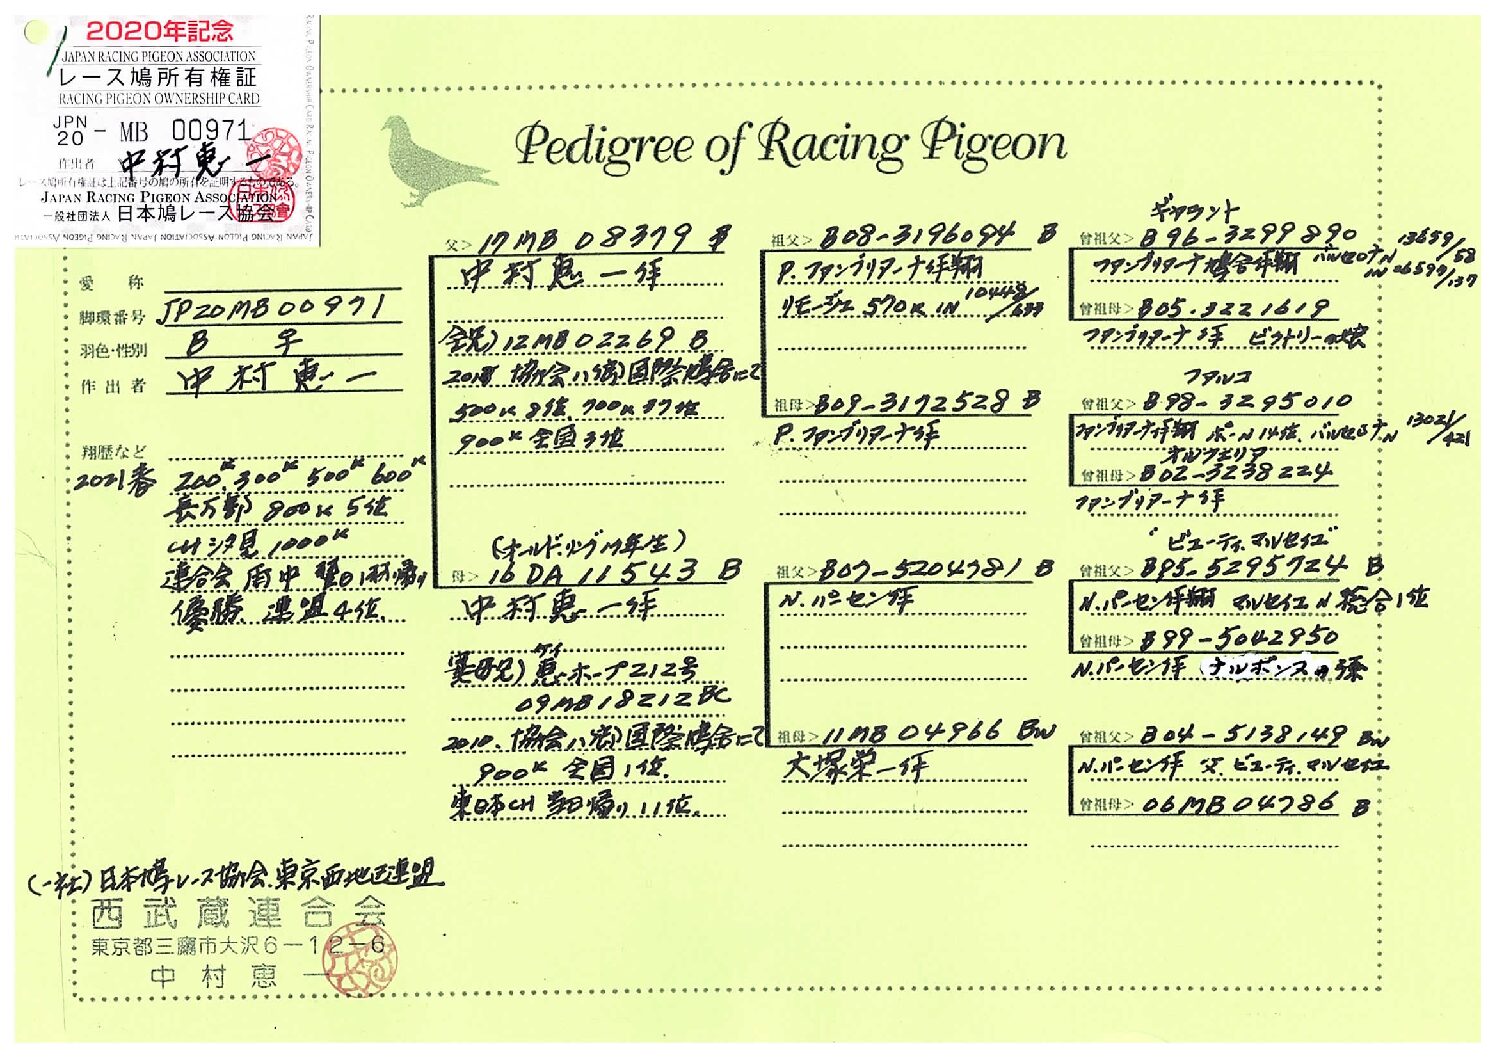 2020年記念
JAPAN RACING PIGEON ASSOCIATION
レース鳩所有権証
RACING PIGEON OWNERSHIP CARD
JPN 20 - MB 00971
作出者 中村恵一
レース鳩所有権証は上記番号の鳩の所有を証明するものである。
JAPAN RACING PIGEON ASSOCIATION
一般社団法人 日本鳩レース協会
Pedigree of Racing Pigeon
愛称
脚環番号 JP20MB00971
羽色・性別 B ♀
作出者 中村恵一
翔歴など
2021春 200K 300K 500K 600K
長万部 800K 5位
CH 汐見 1000K
連合会 雨中 翌日1羽帰り
優勝 連盟4位.
父> 17MB 08379 B
中村恵一作
全兄) 12MB02269 B
協会八郷国際鳩舎にて
500K 8位. 700K 37位
900K 全国3位
(オールドリング17年生)
母> 16DA11543 B
中村恵一作
異母兄) 恵ホープ212号
ケイ
09MB18212 BC
2010. 協会八郷国際鳩舎にて
900K 全国1位.
東日本CH 当日帰り 11位.
祖父> B08-3196094 B
P.ファンブリアーナ作翔
リモージュ 570K IN 10448/633
祖母> B09-3172528 B
P.ファンブリアーナ作
祖父> B07-5204781 B
N.パーセン作
祖母> 11MB04966 BW
大塚栄一作
曾祖父> B96-3299890
ファンブリアーナ鳩舎作翔 バルセロナN 13659/58
IN 06599/137
曾祖母> B05-3221619
ファンブリアーナ作 ビクトリーの娘
曾祖父> B98-3295010
ファンブリアーナ作翔 ポーN14位. バルセロナN 13021/421
オルフェリア
曾祖母> B02-3238224
ファンブリアーナ作
"ビューティ.マルセイユ"
曾祖父> B95-5295724 B
N.パーセン作翔 マルセイユN総合1位
曾祖母> B99-5042950
N.パーセン作 ナルボンヌの孫
曾祖父> B04-5138149 BW
N.パーセン作 父. ビューティ.マルセイユ
曾祖母> 06MB04786 B
(一社) 日本鳩レース協会.東京西地区連盟
西武蔵連合会
東京都三鷹市大沢6-12-6
中村恵一